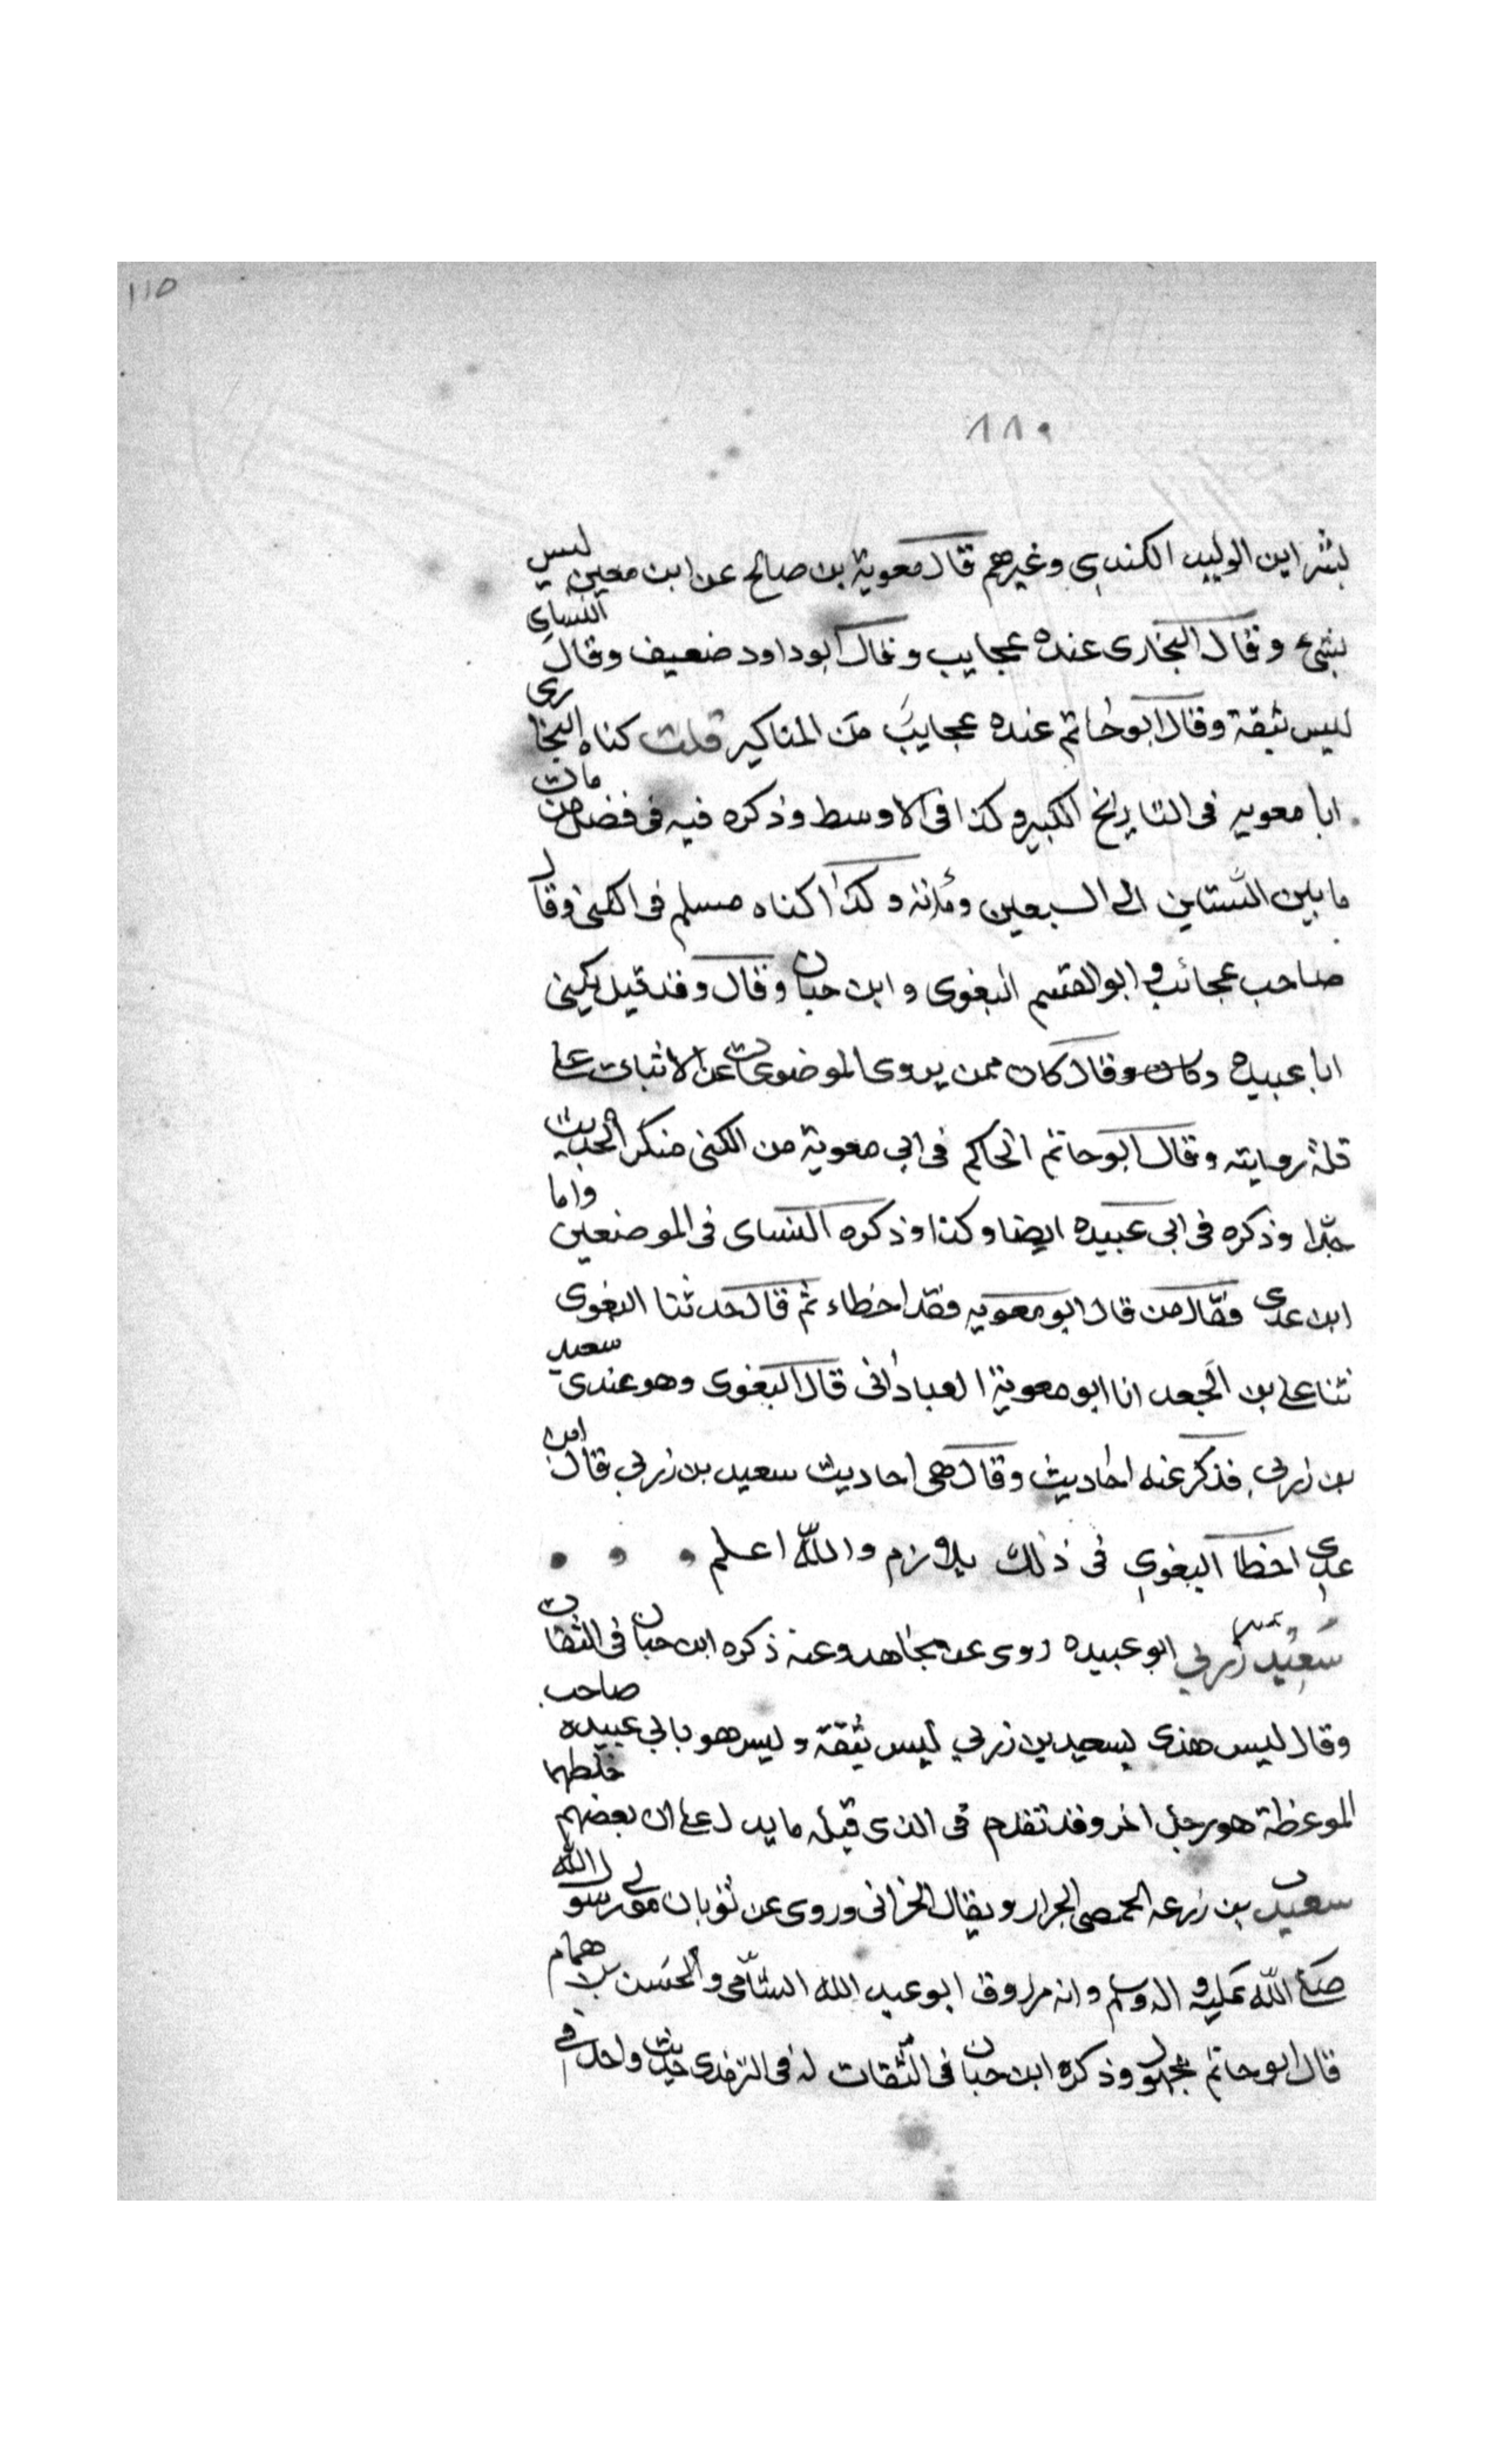 ١١٥
٨٨٠
بشر ابن الوليد الكندي وغيرهم قال معوية بن صالح عن ابن معين ليس
بشئ وقال البخاري عنده عجايب وقال ابو داود ضعيف وقال النساي
ليس بثقة وقال ابو حاتم عنده عجايب من المناكير قلت كناه البخاري
ابا معويه في التاريخ الكبير وكذا في الاوسط وذكره فيه في فضل من مات
ما بين الستين الى السبعين ومائة وكذا كناه مسلم في الكنى وقال
صاحب عجائب و ابو القسم البغوي وابن حبان وقال وقد قيل يكنى
ابا عبيده وكان وقال كان ممن يروى الموضوعات عن الاثبات على
قلة روايته وقال ابو حاتم الحاكم في ابي معوية من الكنى منكر الحديث
جدا وذكره في ابي عبيده ايضا وكذا وذكره النساى في الموضعين واما
ابن عدى فقال من قال ابو معويه فقد اخطاء ثم قال حدثنا البغوى
ثنا على بن الجعد انا ابو معوية العباداني قال البغوى وهو عندى سعيد
بن زربي فذكر عنه احاديث وقال هى احاديث سعيد بن زربي قال ابن
عدي اخطا البغوي في ذلك بلازم والله اعلم
سعيد زربي ابو عبيده روى عن مجاهد وعنه ذكره ابن حبان في الثقات
وقال ليس هذى بسعيد بن زربي ليس بثقة وليس هو بابي عبيده صاحب
الموعظة هو رجل اخر وقد تقدم في الذى قبله ما يدل على ان بعضهم خلطهما
سعيد بن زرعه الحمصى الجرار ويقال الخزافى وروى عن ثوبان مولى رسول الله
صلى الله عليه و اله وسلم وانه مرزوق ابو عبد الله الشامى والحسن بن همام
قال ابو حاتم مجهول وذكره ابن حبان في الثقات له في الترمذى حديث واحد في